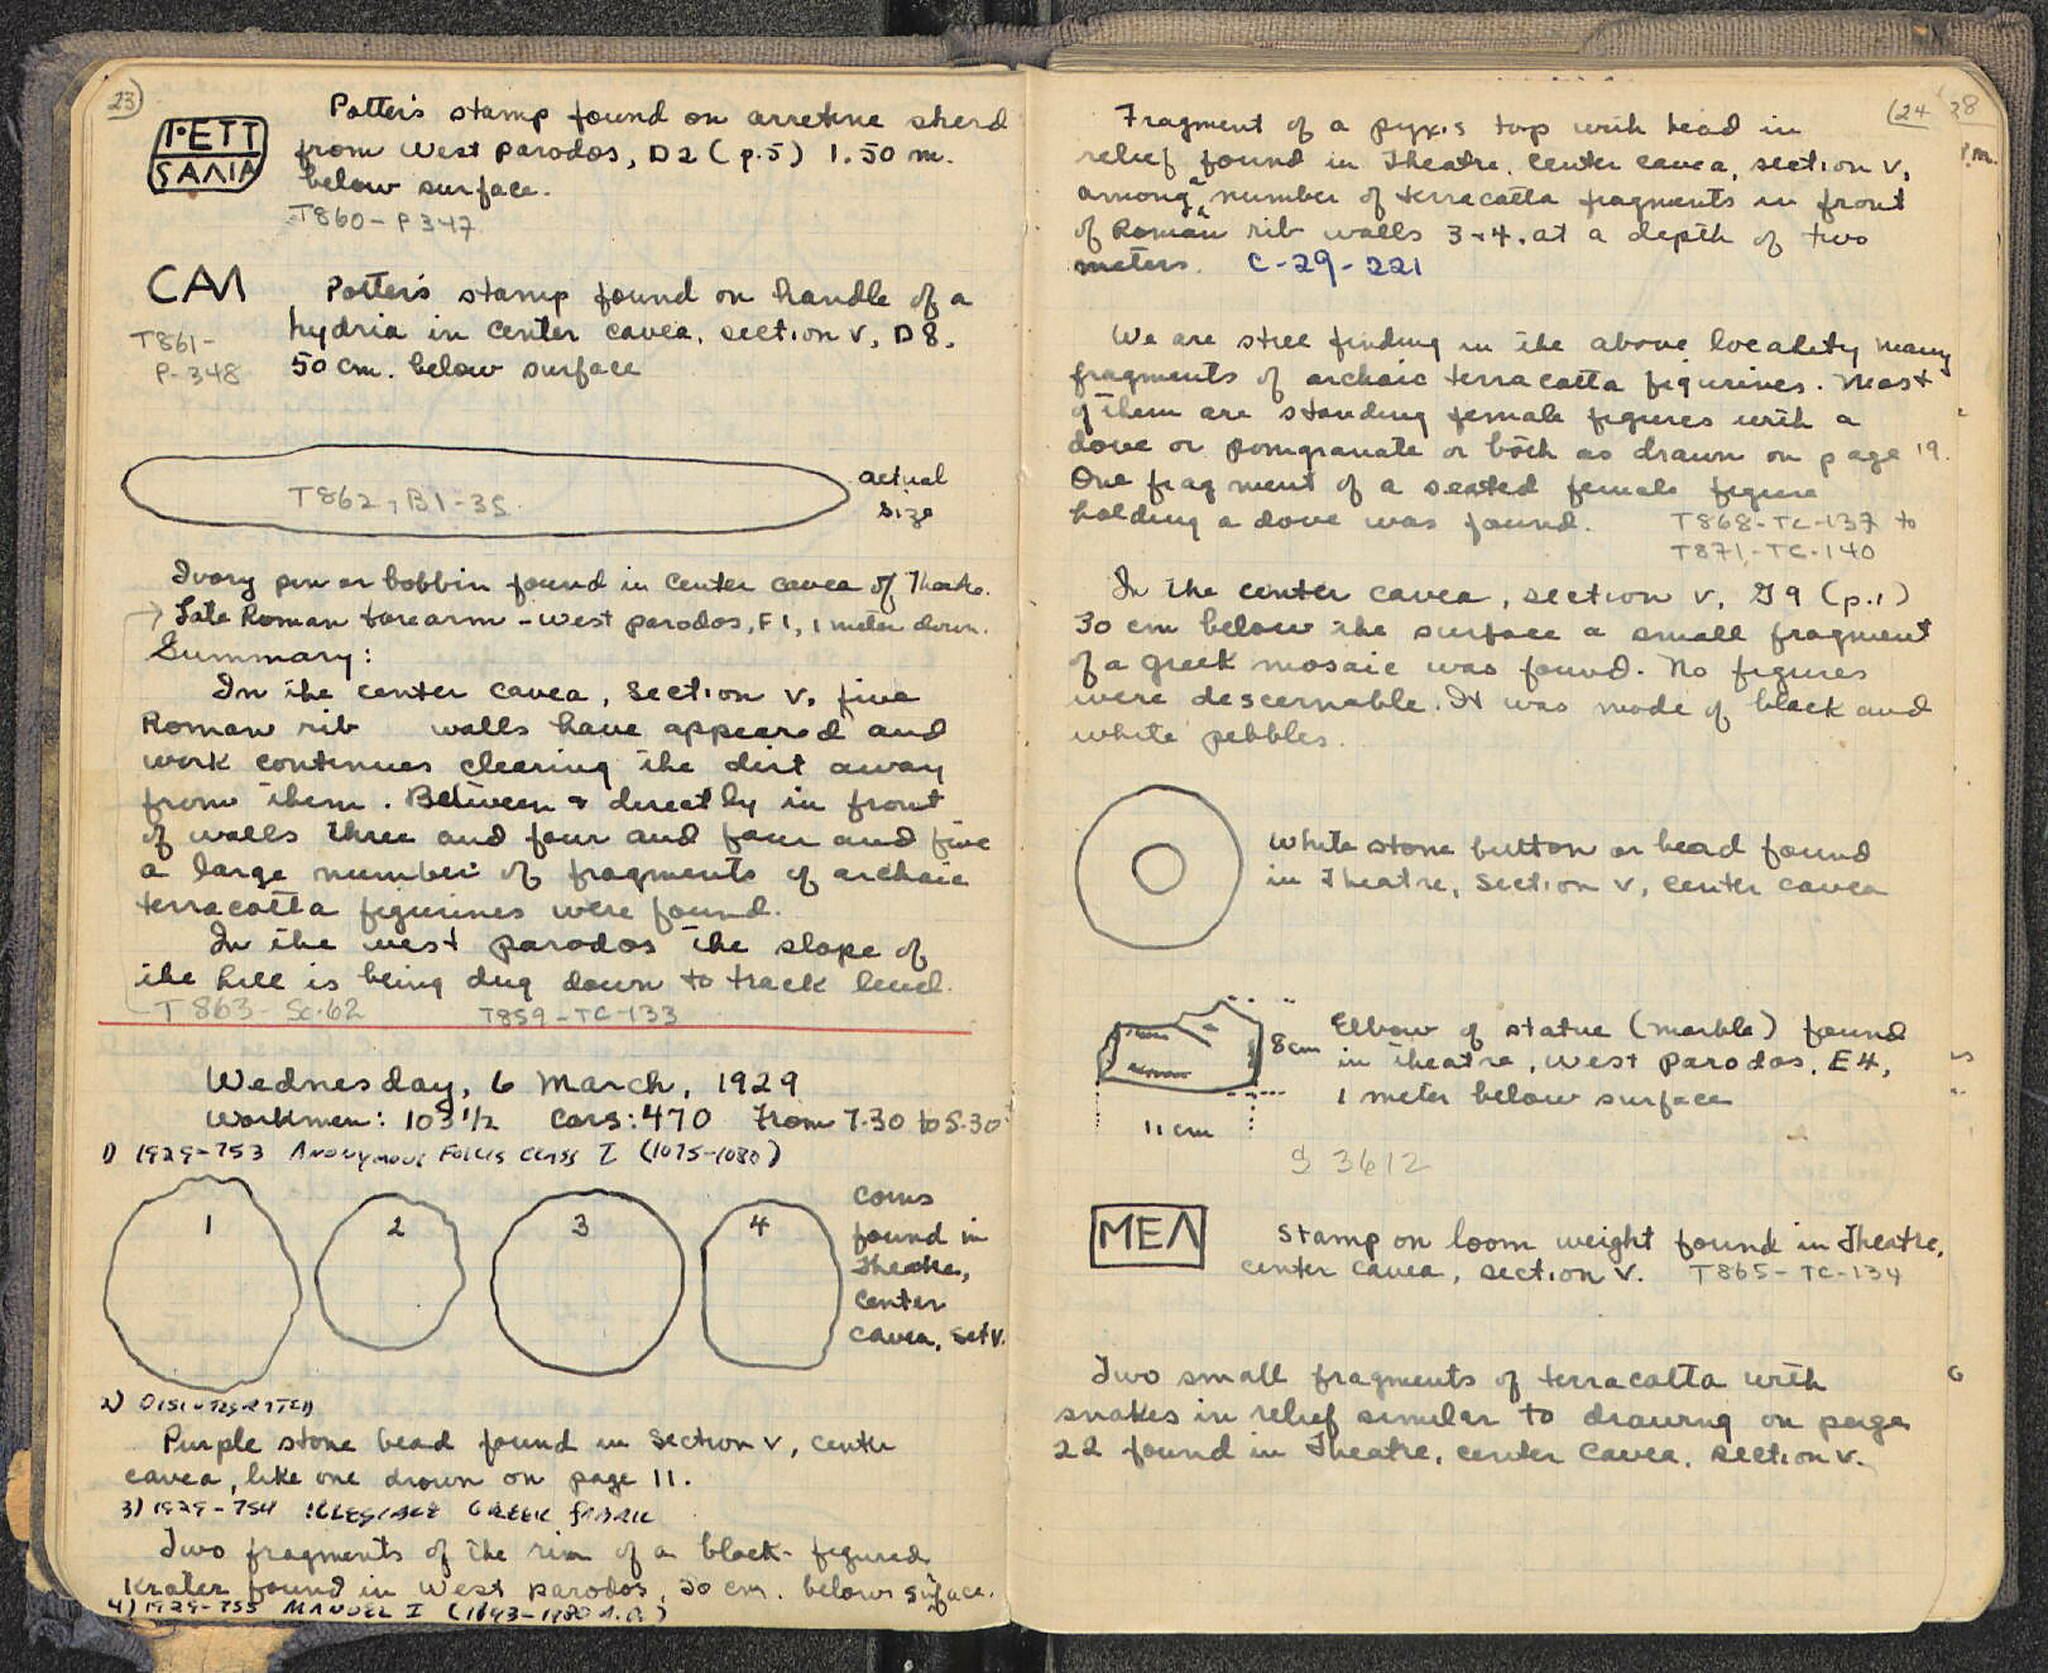 23
P·ETT
SAΛIA
Potter's stamp found on arretine sherd
from West Parodos, D2 (p.5) 1.50 m.
below surface.
T860-P347
CAΛI
Potter's stamp found on handle of a
hydria in center cavea, section V, D8,
50 cm. below surface
T861-
P-348
T862, BI-35
actual
size
Ivory pin or bobbin found in center cavea of Theatre.
→ Late Roman forearm - West parodos, F1, 1 meter down.
Summary:
In the center cavea, section V, five
Roman rib walls have appeared and
work continues clearing the dirt away
from them. Between & directly in front
of walls three and four and four and five
a large number of fragments of archaic
terracotta figurines were found.
In the west parodos the slope of
the hill is being dug down to track level.
T863-Sc.62 T859-TC-133
Wednesday, 6 March, 1929
Workmen: 103 1/2 Cars: 470 From 7.30 to 5.30
1) 1929-753 Anonymous Follis Class I (1075-1080)
1 2 3 4
Coins
found in
Theatre,
center
cavea, Sect V.
2) DISINTEGRATED
Purple stone bead found in section V, center
cavea, like one drawn on page 11.
3) 1929-754 ILLEGIBLE GREEK
Two fragments of the rim of a black-figured
krater found in West parodos, 20 cm. below surface.
4) 1929-755 MANUEL I (1143-1180 A.D.)
24 38
P.M.
Fragment of a pyxis top with head in
relief found in Theatre, center cavea, section V,
among a number of terracotta fragments in front
of Roman rib walls 3+4, at a depth of two
meters. C-29-221
We are still finding in the above locality many
fragments of archaic terracotta figurines. Most
of them are standing female figures with a
dove or pomgranate or both as drawn on page 19.
One fragment of a seated female figure
holding a dove was found. T868-TC-137 to
T871-TC-140
In the center cavea, section V, G9 (p.1)
30 cm below the surface a small fragment
of a greek mosaic was found. No figures
were descernable. It was made of black and
white pebbles.
White stone button or bead found
in Theatre, Section V, center cavea
8cm
11 cm
Elbow of statue (marble) found
in theatre, West Parodos, E4,
1 meter below surface
S 3612
MEΛ
Stamp on loom weight found in Theatre,
center cavea, section V. T865-TC-134
Two small fragments of terracotta with
snakes in relief similar to drawing on page
22 found in Theatre, center cavea, section V.